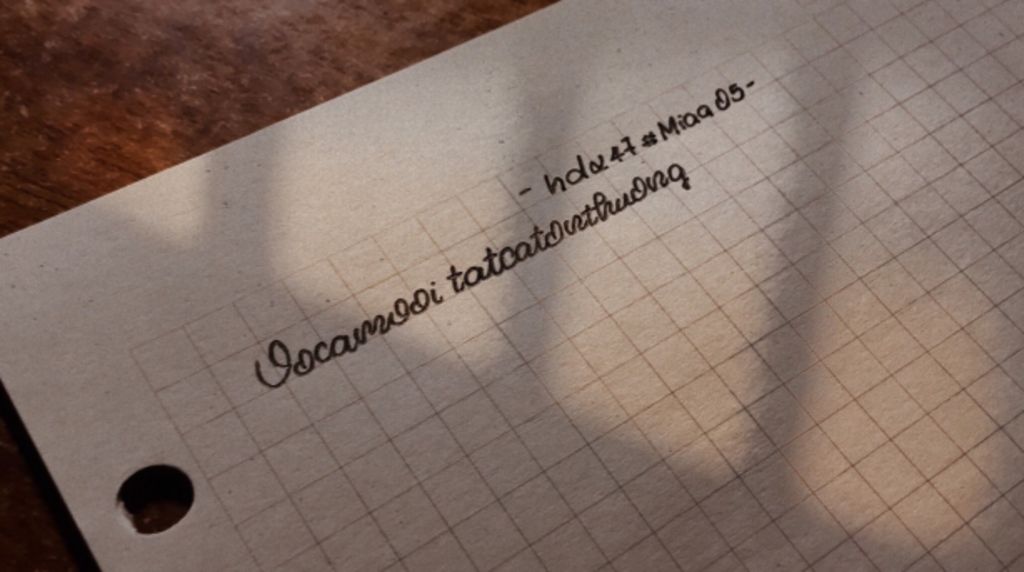 - hdα 47 #Miaa 05-
Oocamooi tatcatonthuong